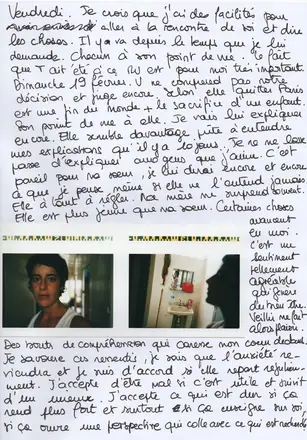 Vendredi. Je crois que j'ai des facilités pour
aller à la rencontre de soi et dire
les choses. Il y a depuis le temps que je lui
demande. Chacun a son point de vue. le fait
que T ait été ici ce WE est pour moi très important
Dimanche 19 février. Il ne comprend pas notre
décision et juge encore. Selon elle quitter Paris
est une fin du monde + le sacrifice d'un enfant.
Son point de vue à elle. Je vais lui expliquer
encore. Elle semble davantage prête à entendre
mes explications qu'il y a 10 jours. Je ne me
passe d'expliquer aux gens que j'aime. C'est
pareil pour ma soeur, je lui dirai encore et encore
à que je pense même si elle ne l'entend jamais.
Elle a tout à régler. Ma mère ne surprend souvent.
Elle est plus jeune que ma soeur. Certaines choses
avancent
en moi.
c'est un
sentiment
tellement
agréable
qui génère
du bien être.
Veillir me fait
alors plaisir.
Des bouts de compréhension qui caresse mon coeur
Je savoure ces remontées, je sais que l'anxiété re-
viendra et je suis d'accord si elle repart régulière-
ment. J'accepte d'être mal si c'est utile et suivi
d'un mieux. J'accepte ce qui est dur si ça
rend plus fort et surtout si ça enseigne sur soi
si ça ouvre une perspective qui colle avec ce qui est recherché